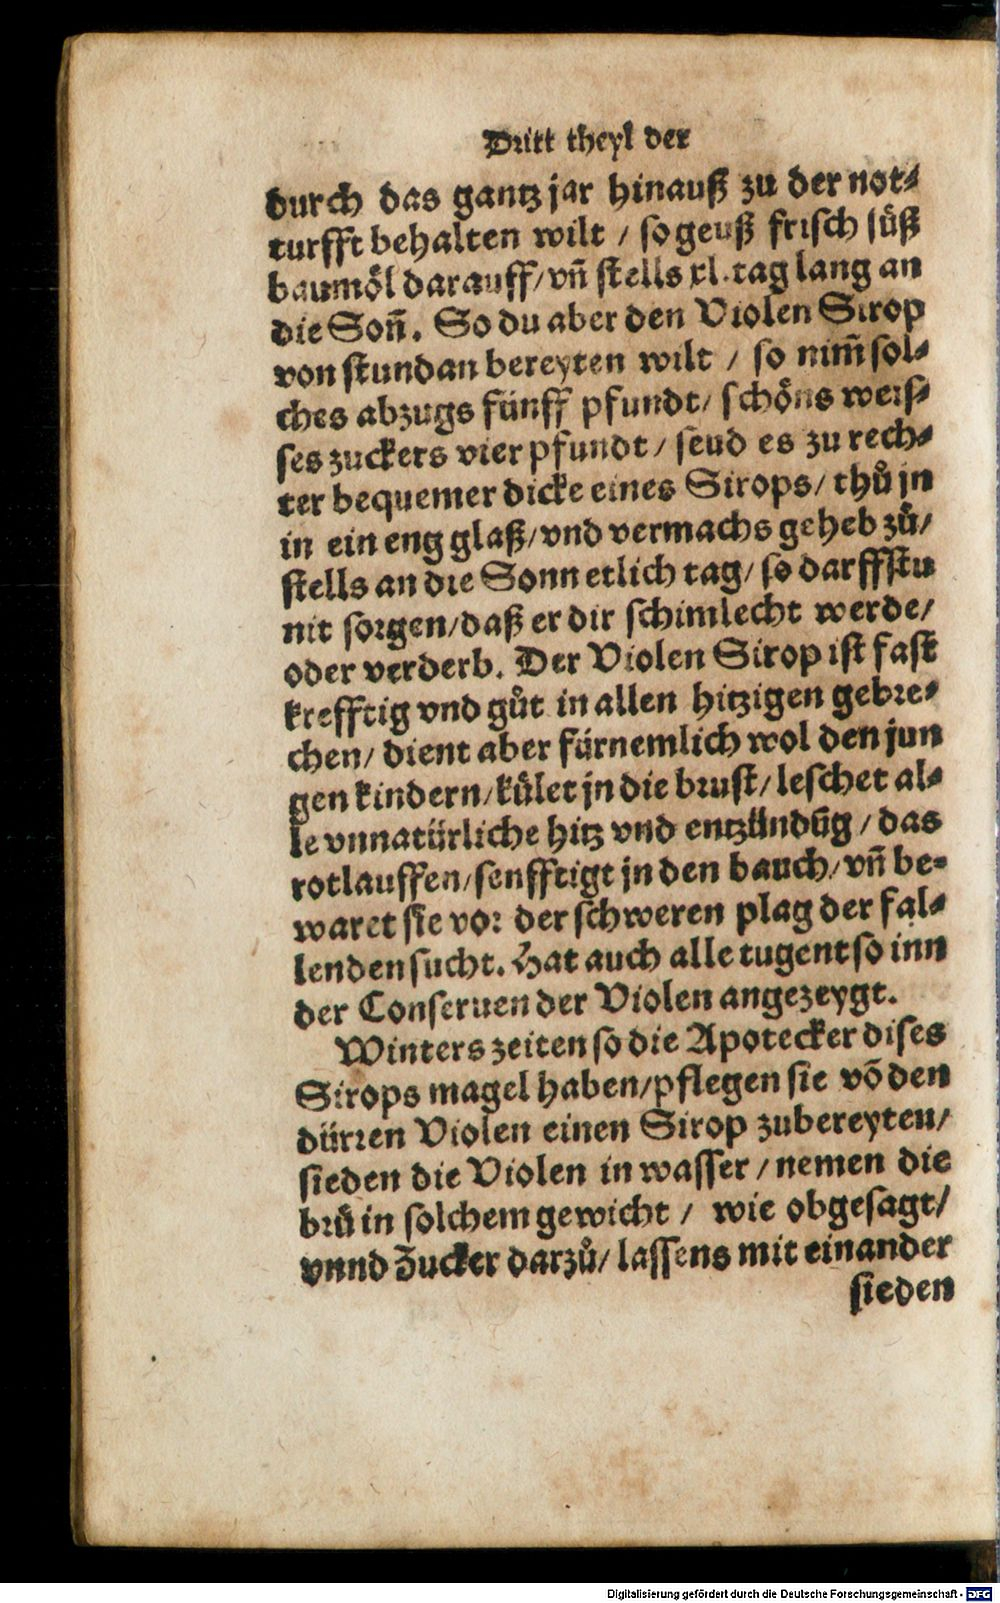 Dritt theyl der
durch das gantz jar hinauß zu der not⸗
turfft behalten wilt / so geuß frisch süß
baumöl darauff/ vñ stells xl. tag lang an
die Soñ. So du aber den Violen Sirop
von stundan bereyten wilt / so nim̃ sol⸗
ches abzugs fünff pfundt/ schöns weis⸗
ses zuckers vier pfundt / seud es zu rech⸗
ter bequemer dicke eines Sirops/ thů jn
in ein eng glaß/ vnd vermachs geheb zů/
stells an die Sonn etlich tag/ so darffstu
nit sorgen/ daß er dir schimlecht werde/
oder verderb. Der Violen Sirop ist fast
krefftig vnd gůt in allen hitzigen gebre⸗
chen/ dient aber fürnemlich wol den jun
gen kindern/ kület jn die brust/ leschet al⸗
le vnnatürliche hitz vnd entzündũg / das
rotlauffen/ senfftigt jn den bauch/ vñ be⸗
waret sie vor der schweren plag der fal⸗
lenden sucht. Hat auch alle tugent so inn
der Conseruen der Violen angezeygt.
Winters zeiten so die Apotecker dises
Sirops magel haben/ pflegen sie võ den
dürren Violen einen Sirop zubereyten/
sieden die Violen in wasser / nemen die
brü in solchem gewicht / wie obgesagt/
vnnd Zucker darzů/ lassens mit einander
sieden
Digitalisierung gefördert durch die Deutsche Forschungsgemeinschaft - DFG